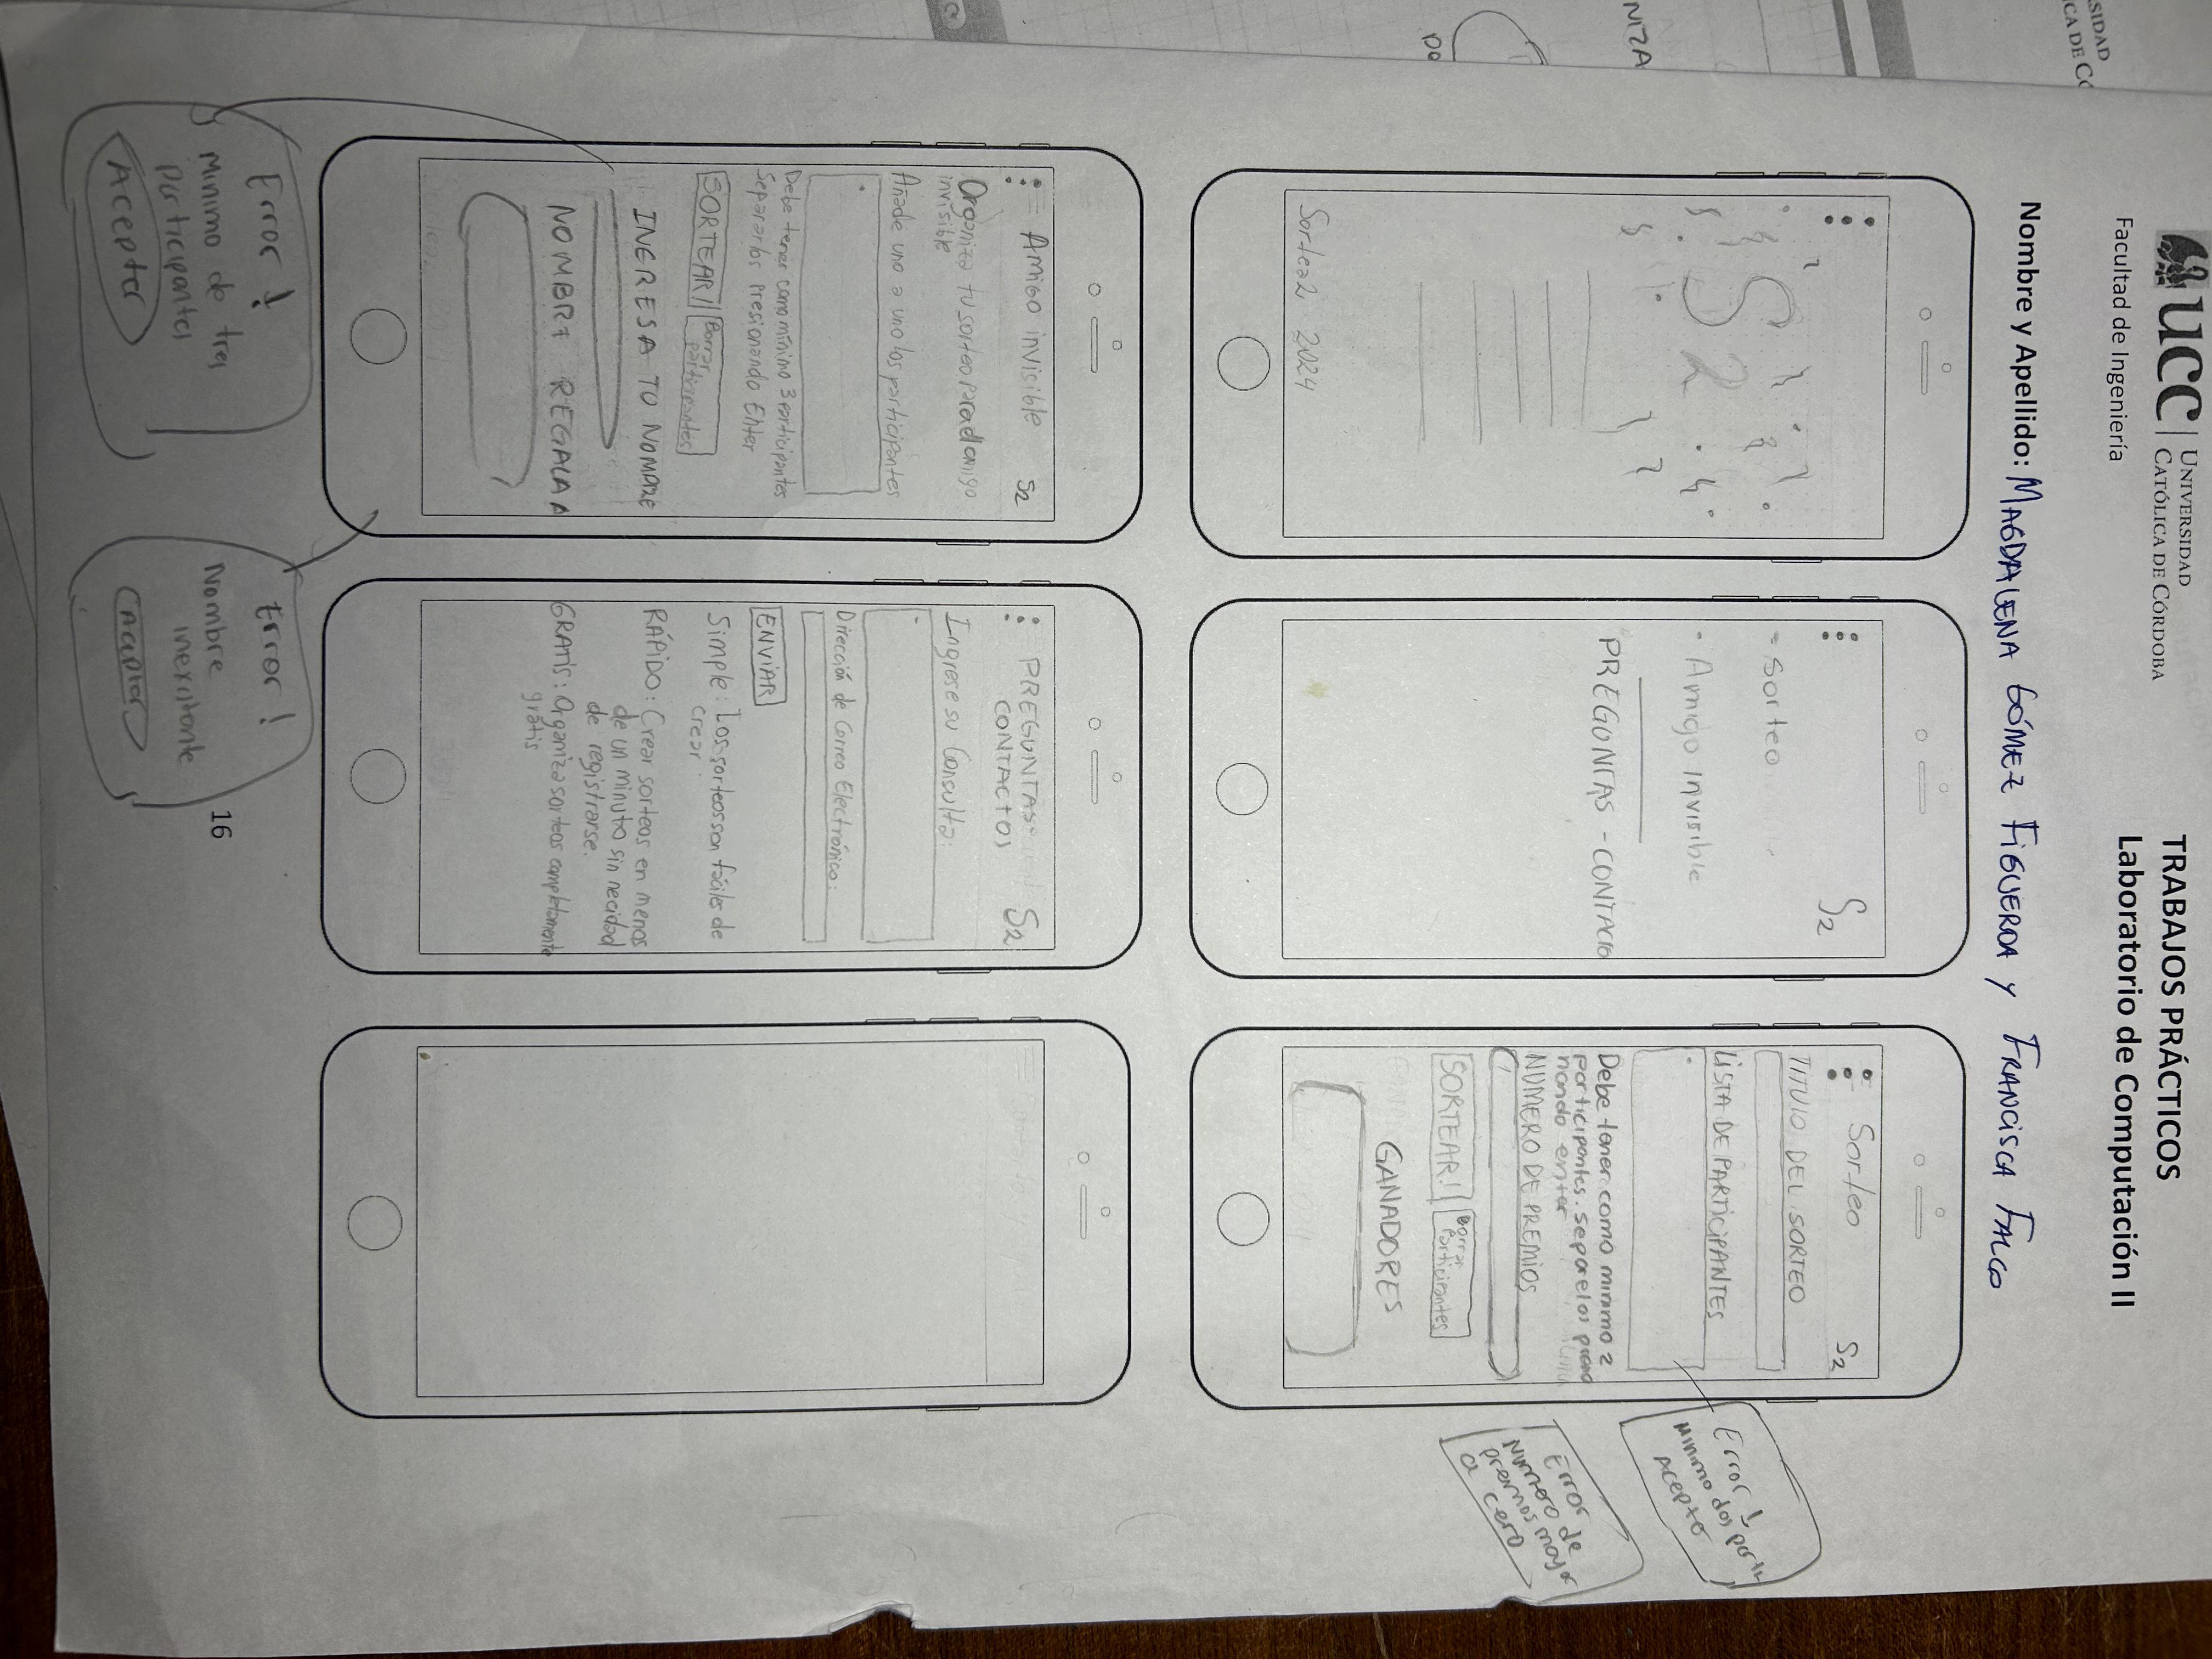 UCC
UNIVERSIDAD
CATÓLICA DE CÓRDOBA
Facultad de Ingeniería
TRABAJOS PRÁCTICOS
Laboratorio de Computación II
Nombre y Apellido: MAGDALENA GÓMEZ FIGUEROA Y FRANCISCA FALCO
S2
Sortea2 2024
S2
- Sorteo
- Amigo Invisible
PREGUNTAS - CONTACTO
Sorteo S2
TITULO DEL SORTEO
LISTA DE PARTICIPANTES
Debe tener como minimo 2
participantes. separelos presio
nando enter
NUMERO DE PREMIOS
SORTEAR!
Borrar
Participantes
GANADORES
Error!
Minimo dos parti
Acepto
Error
Numero de
premios mayor
a cero
Amigo invisible S2
Organiza tu sorteo para el amigo
invisible
Añade uno a uno los participantes
Debe tener como mínimo 3 participantes
Separarlos presionando Enter
SORTEAR!
Borrar
participantes
INGRESA TU NOMBRE
NOMBRE REGALA A
Error!
Minimo de tres
participantes
Aceptar
PREGUNTAS S2
CONTACTOS
Ingrese su Consulta:
Dirección de Correo Electrónico:
ENVIAR
Simple: Los sorteos son fáciles de
crear.
RÁPIDO: Crear sorteos en menos
de un minuto sin necidad
de registrarse.
GRATIS: Organiza sorteos completamente
grátis
Error!
Nombre
inexistente
Aceptar
16